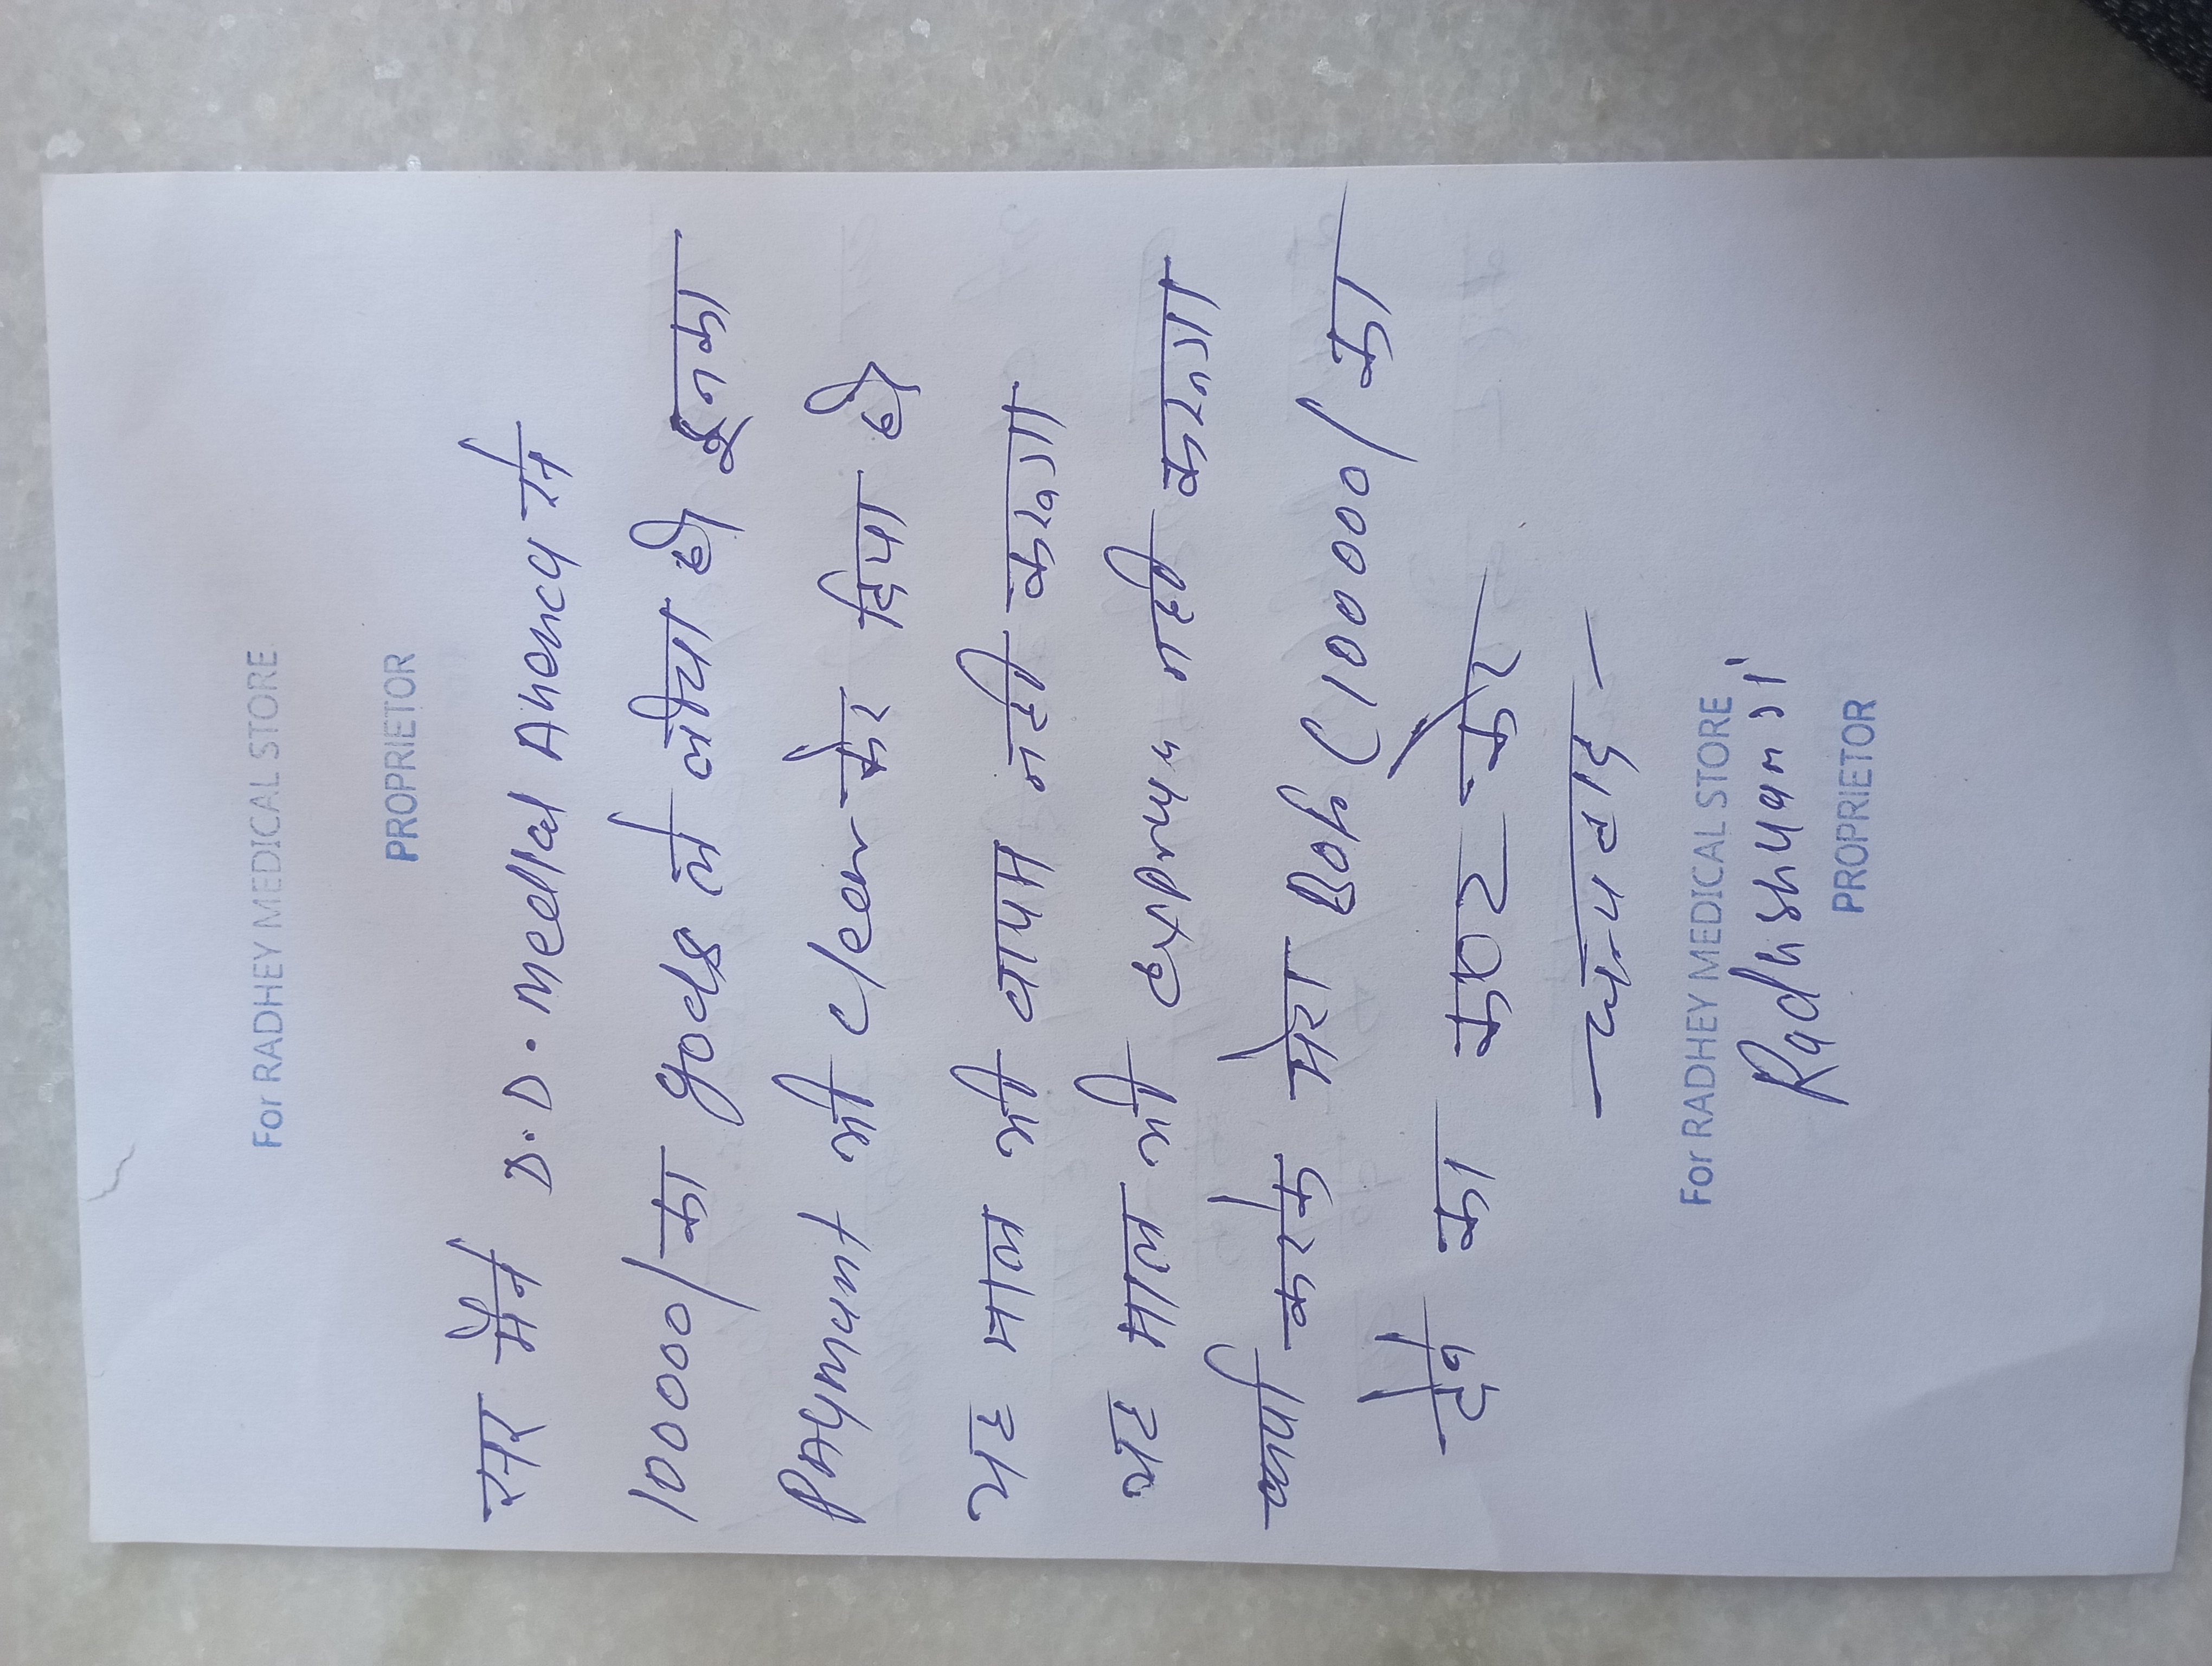 For RADHEY MEDICAL STORE
PROPRIETOR
सर मैने D.D. Medical Agency से
100000/ का goods ले लीया है इनका
Payment भी clear कर दिया है
यह माल भी वापस नही करुगा
यह माल भी expiry में नही करुगा
कृपया करके मेरा Boy (10000/ का
देने का कष्ट करे
धन्यवाद
For RADHEY MEDICAL STORE
Radhishyamji
PROPRIETOR